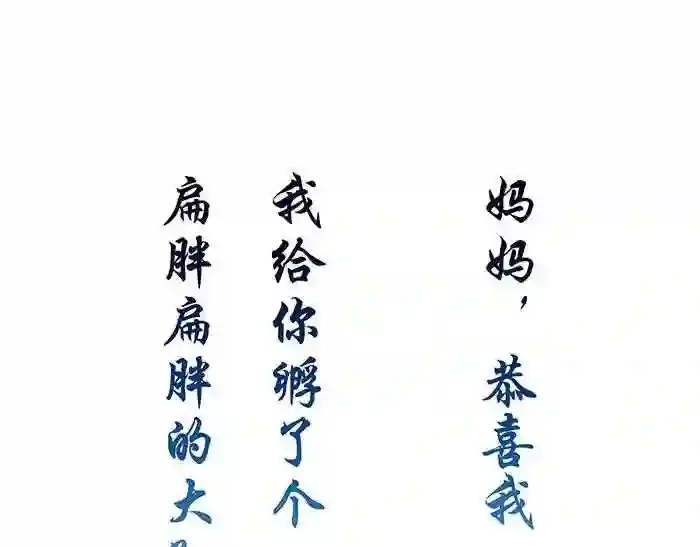 妈妈，恭喜我
我给你孵了个
扁胖扁胖的大